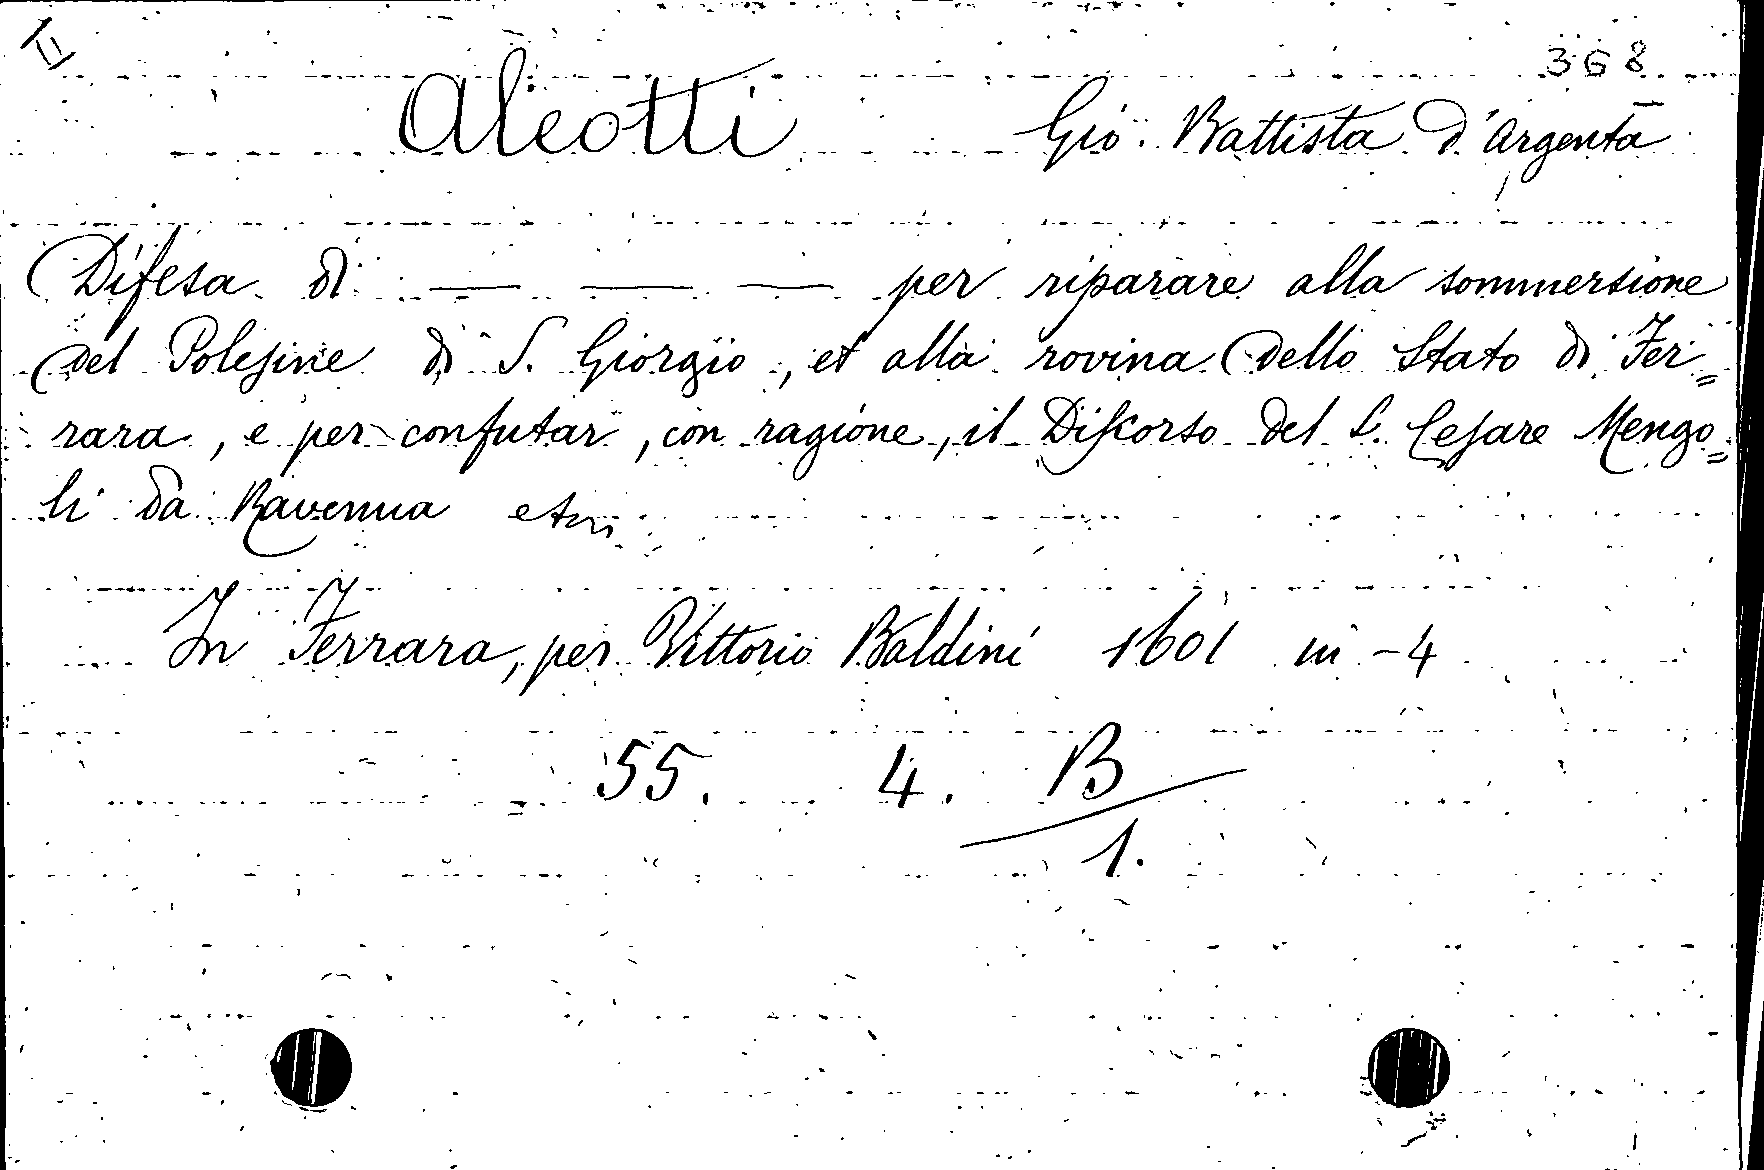 II
368
Aleotti Gio. Battista d'Argenta
Difesa di — — — per riparare alla sommersione
del Polesine di S. Giorgio, et alla rovina dello Stato di Fer=
rara, e per confutar, con ragione, il Discorso del S. Cesare Mengo=
li da Ravenna
In Ferrara, per Vittorio Baldini 1601 in-4
55. 4. B
1.